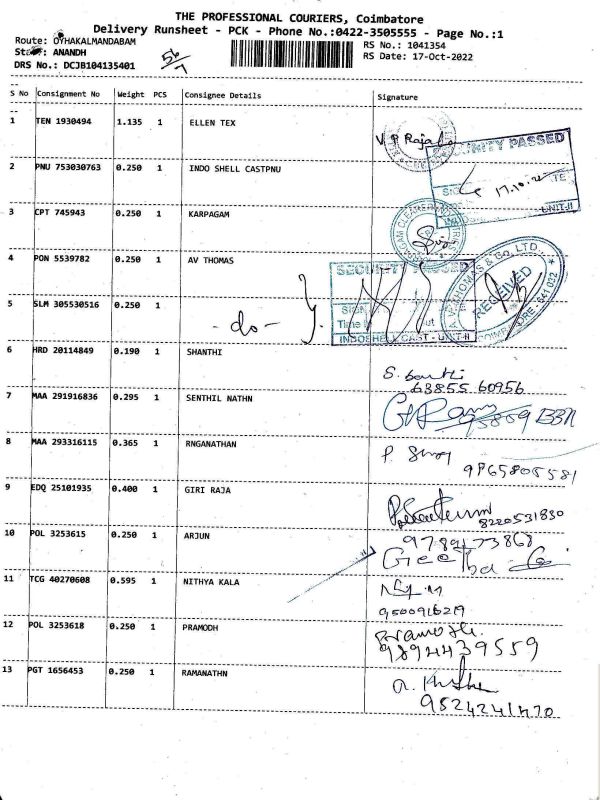 THE PROFESSIONAL COURIERS, Coimbatore
Delivery Runsheet - PCK - Phone No.:0422-3505555 - Page No.:1
Route: OYHAKALMANDABAM
RS No.: 1041354
ANANDH
RS Date: 17-Oct-2022
DRS No.: DCJB104135401
56/7
S No Consignment No Weight PCS Consignee Details Signature
1 TEN 1930494 1.135 1 ELLEN TEX
V P Raja
SECURITY PASSED
2 PNU 753030763 0.250 1 INDO SHELL CASTPNU
17.10.22
UNIT-II
3 CPT 745943 0.250 1 KARPAGAM
4 PON 5539782 0.250 1 AV THOMAS
SECURITY PASSED
A.V. THOMAS & Co. LTD.
RECEIVED
COIMBATORE - 641 032
5 SLM 305530516 0.250 1
- do -
Time In Out
INDOSHELL CAST - UNIT-II
6 HRD 20114849 0.190 1 SHANTHI
S. Santhi
63855 60956
7 MAA 291916836 0.295 1 SENTHIL NATHN
8 MAA 293316115 0.365 1 RNGANATHAN
9865805581
9 EDQ 25101935 0.400 1 GIRI RAJA
8220531830
10 POL 3253615 0.250 1 ARJUN
9789173868
Geetha
11 TCG 40270608 0.595 1 NITHYA KALA
9500916219
12 POL 3253618 0.250 1 PRAMODH
Pramoth.
9894439559
13 PGT 1656453 0.250 1 RAMANATHN
9524241470